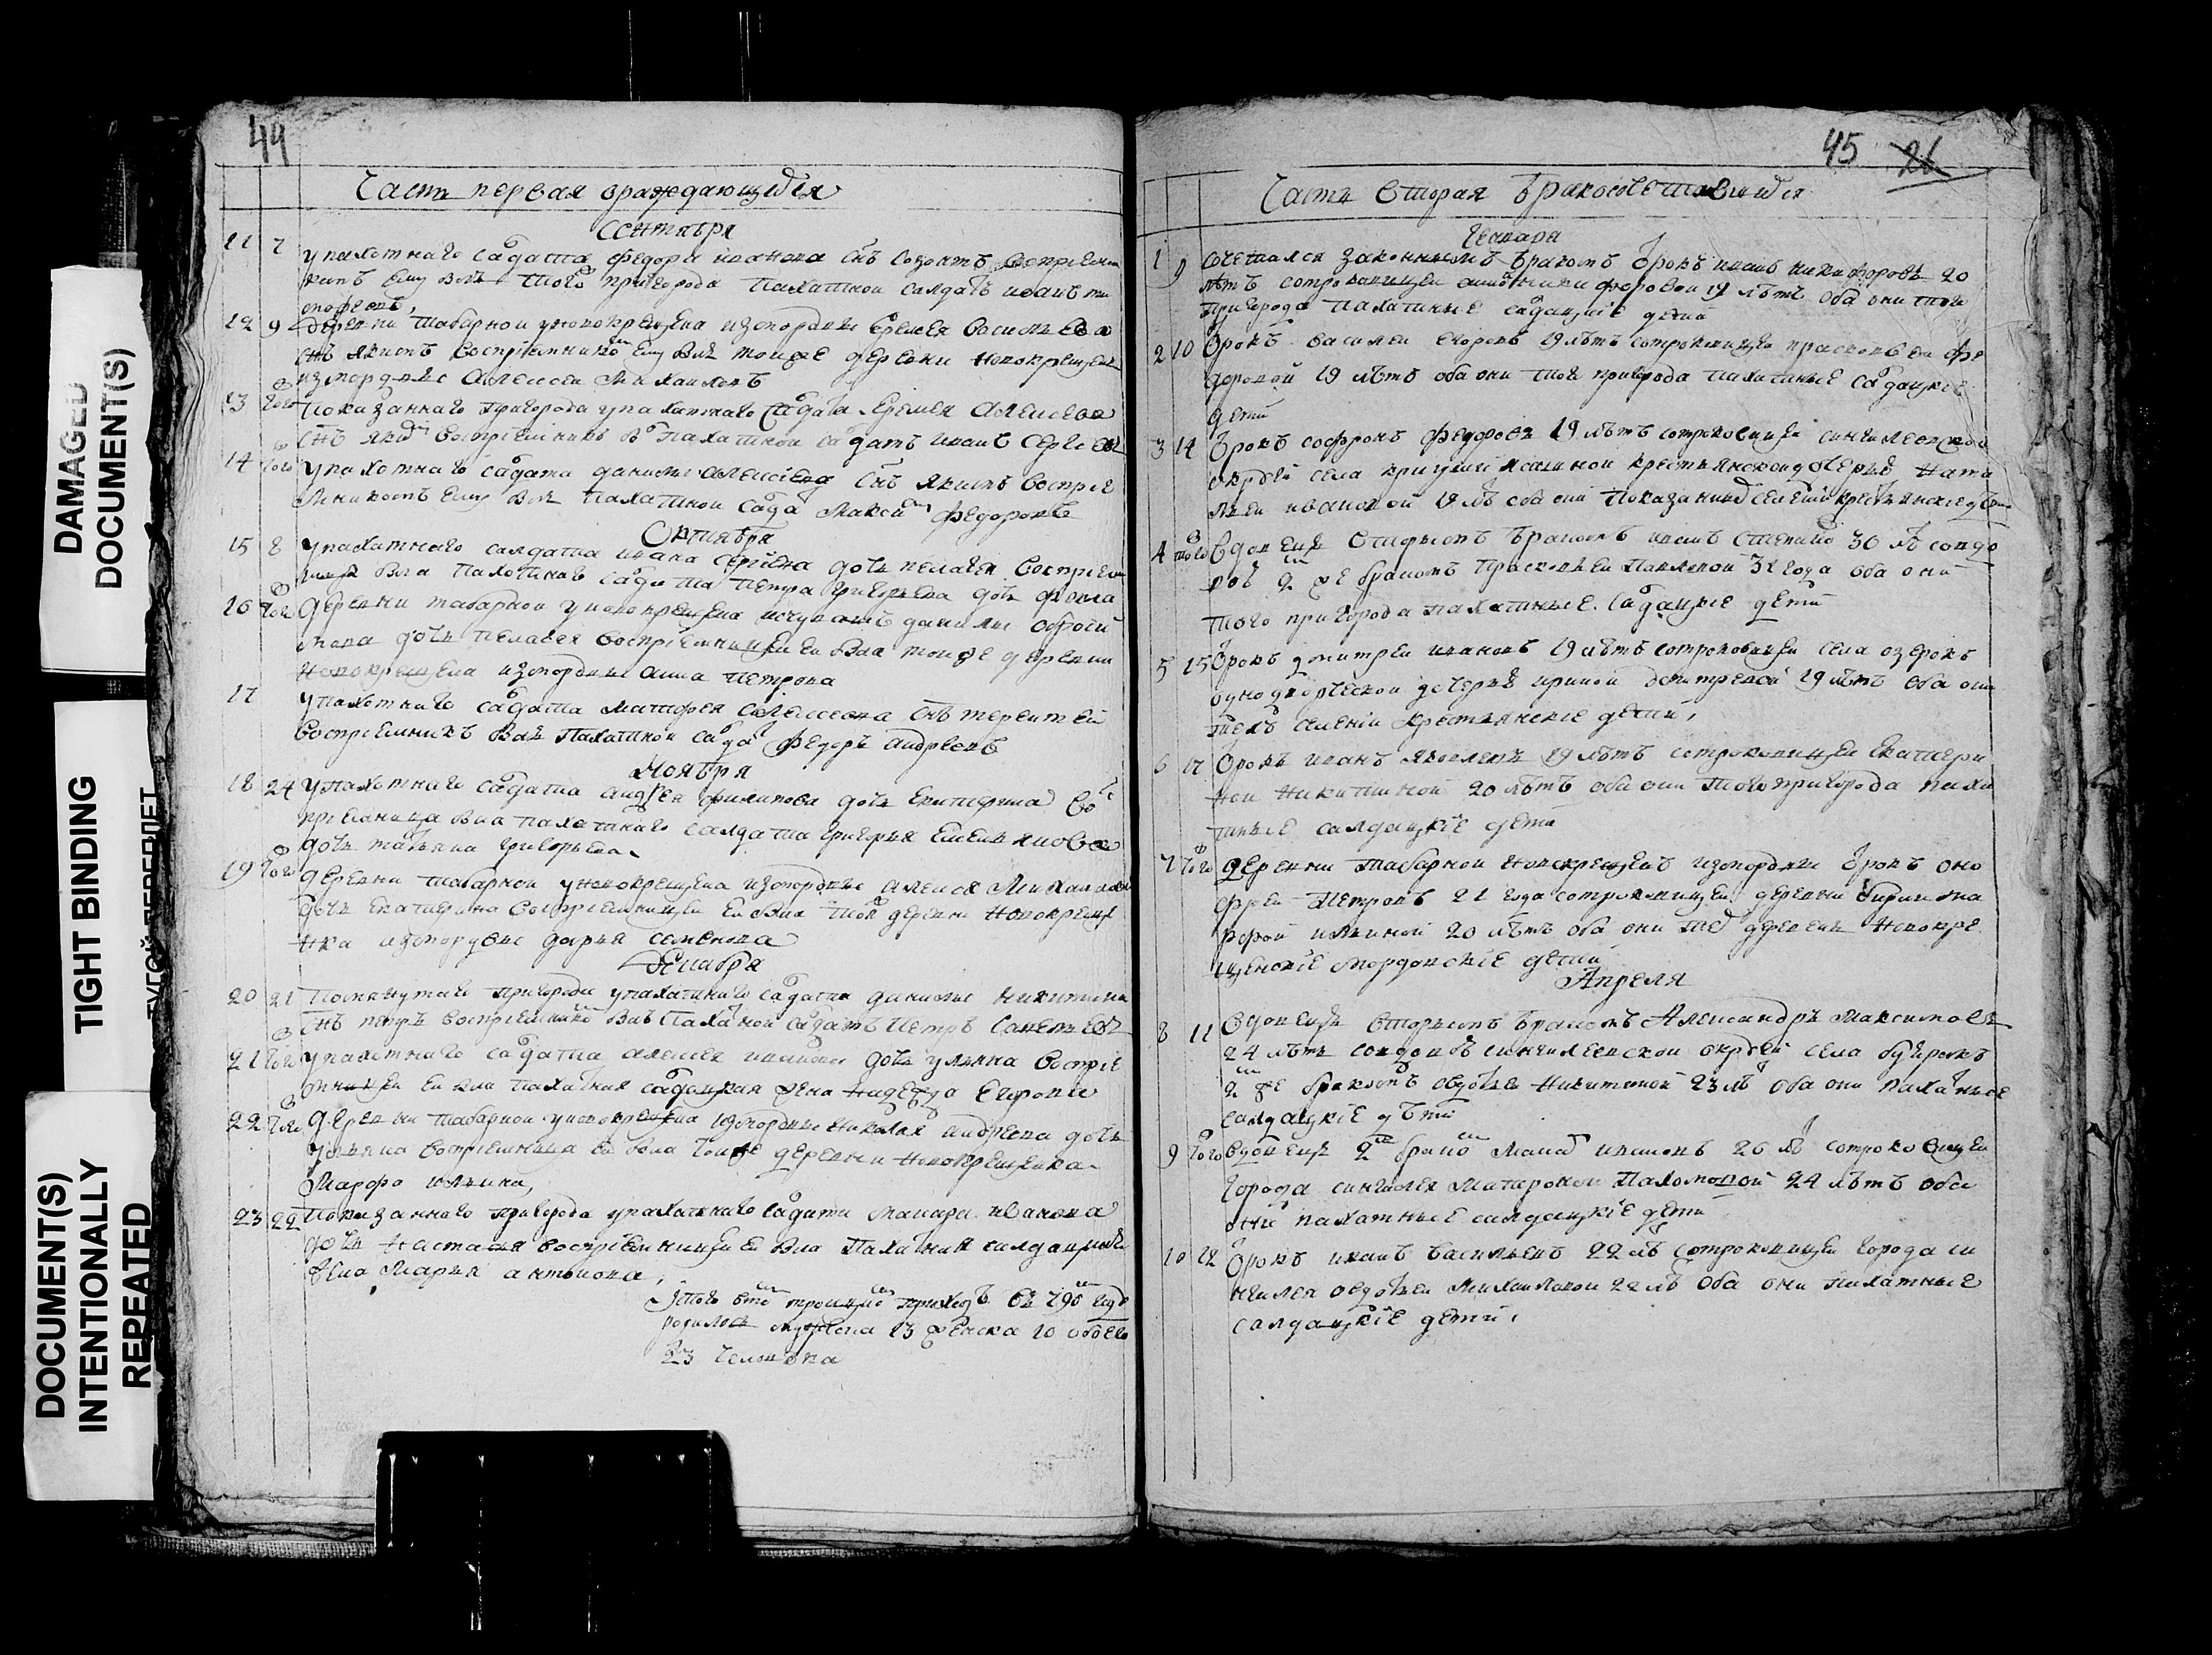 DAMAGED
DOCUMENT(S)
TIGHT BINDING
ТУГОЙ ПЕРЕПЛЕТ
DOCUMENT(S)
INTENTIONALLY
REPEATED
44
Часть первая
Сентября
11 7 у пахотнаго салдата федора иванова снъ созонтъ
ему былъ того пригорода пахатной салдатъ иванъ
12 9 деревни табарной у новокрещена измордвы еремея васильева
снъ якимъ воспріемникомъ ему былъ тойже деревни новокрещенъ
измордвы алексеи михаиловъ
13 того показаннаго пригорода у пахатнаго салдата еремея алексеева
снъ воспріемникъ пахатной салдатъ иванъ сергеевъ
14 того у пахотнаго салдата данилы алексеева снъ якимъ воспріе
мникомъ ему былъ пахатной салдатъ максимъ федоровъ
Октября
15 8 у пахатнаго салдата ивана сергеева дочь пелагея
была пахотнаго салдата петра григорьева дочь
16 того деревни табарной у новокрещена данилы
дочь пелагея воспріемницеи еи была тойже деревни
новокрещена измордвы анна петрова
17 у пахотнаго салдата матфея алексеева снъ терентеи
воспріемникъ былъ пахатной салдатъ федоръ андреевъ
Ноября
18 24 у пахотнаго салдата андрея филипова дочь екатерина вос
пріемница была пахатнаго салдата григорья
дочь татьяна григорьева
19 того деревни табарной у новокрещена измордвы алексея михаилова
дочь екатерина воспріемницеи еи была той деревни новокреще
нка измордвы дарья семенова
Декабря
20 21 помянутаго пригорода у пахатнаго салдата данилы никитина
снъ петръ воспріемникомъ былъ пахатной салдатъ петръ савельевъ
21 того у пахотнаго салдата алексея иванова дочь ульяна воспріе
мницеи еи была пахатная салдацкая жена надежда
22 того деревни табарной у новокрещена измордвы николая андреева дочь
ульяна воспріемница еи была тойже деревни новокрещенка
марфа ильина,
23 22 показаннаго пригорода у пахатнаго салдата макара иванова
дочь настасья воспріемницеи еи была пахатная салдацкая
жена марья антонова,
Итого приходъ въ 790 году
родилось мужеска 13 женска 10 обоего
23 человека
45 26
Часть вторая бракосочетавшихся
Генваря
1 9 сочетался законнымъ бракомъ отрокъ иванъ никифоровъ 20
летъ сотроковицеи никифоровой 19 летъ оба они того
пригорода пахатные салдацкіе дети
2 10 отрокъ василеи егоровъ 19 летъ сотроковицею прасковьеи фе
доровой 19 летъ оба они того пригорода пахатные салдацкіе
дети
3 14 отрокъ софронъ федоровъ 19 летъ сотроковицеи сингилеевской
округи села крестьянской дочерью ната
льеи ивановой 19 летъ оба они показанныхъ селеній крестьянскіе дети
4 того вдовецъ вторымъ бракомъ иванъ степановъ 30 летъ совдо
вою 2 же бракомъ прасковьеи павловой 31 года оба они
того пригорода пахатные салдацкіе дети
5 15 отрокъ дмитреи ивановъ 19 летъ сотроковицеи села озерокъ
однодворческой дочерью ириной дмитревой 19 летъ оба они
техъ селеніи крестьянскіе дети,
6 17 отрокъ иванъ яковлевъ 19 летъ сотроковицеи екатери
ной никитиной 20 летъ оба они того пригорода паха
тные салдацкіе дети
7 того деревни табарной новокрещенъ измордвы отрокъ оно
фреи петровъ 21 года сотроковицеи деревни
ильиной 20 летъ оба они техъ деревень новокре
щенскіе мордовскіе дети
Апреля
8 11 вдовецъ вторымъ бракомъ Александръ максимовъ
24 летъ совдовою сингилеевской округи села
2 же бракомъ авдотьеи никитиной 23 летъ оба они пахатные
салдацкіе дети
9 того вдовецъ 2 бракомъ ивановъ 26 летъ сотроковицеи
города сингилея матроной пахомовой 24 летъ оба
они пахатные салдацкіе дети
10 12 отрокъ иванъ васильевъ 22 летъ сотроковицеи города си
нгилея авдотьеи михаиловой 22 летъ оба они пахатные
салдацкіе дети,